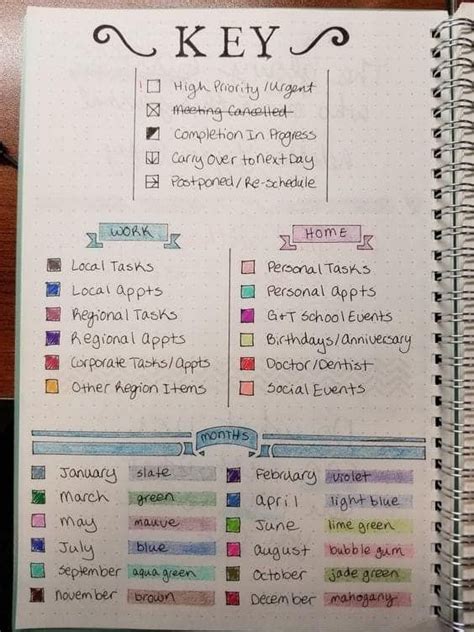 KEY
! High Priority/Urgent
Meeting Cancelled
Completion In Progress
Carry Over to Next Day
Postponed/Re-schedule
WORK
Local Tasks
Local Appts
Regional Tasks
Regional Appts
Corporate Tasks/Appts
Other Region Items
HOME
Personal Tasks
Personal Appts
G&T School Events
Birthdays/Anniversary
Doctor/Dentist
Social Events
MONTHS
January slate
February violet
March green
April light blue
May mauve
June lime green
July blue
August bubble gum
September aqua green
October jade green
November brown
December mahogany